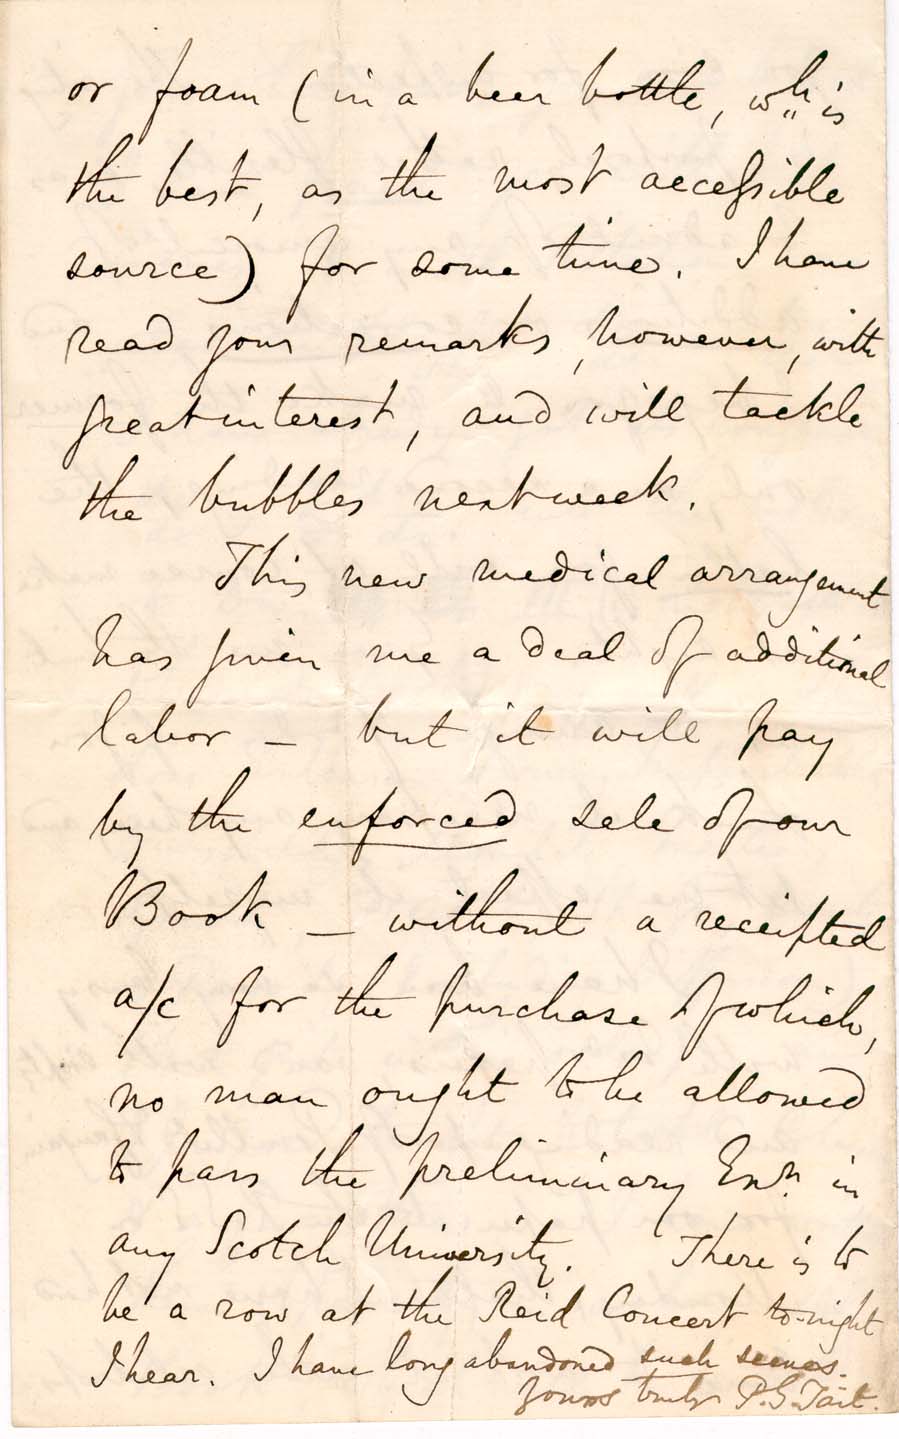 or foam (in a beer bottle, wh is
the best, as the most accessible
source) for some time. I have
read your remarks, however, with
great interest, and will tackle
the bubbles next week.
This new medical arrangement
has given me a deal of additional
labor — but it will pay
by the enforced sale of our
Book — without a receipted
a/c for the purchase of which,
no man ought to be allowed
to pass the preliminary Exn. in
any Scotch University. There is to
be a row at the Reid Concert to-night
I hear. I have long abandoned such scenes.
Yours truly P.G. Tait.